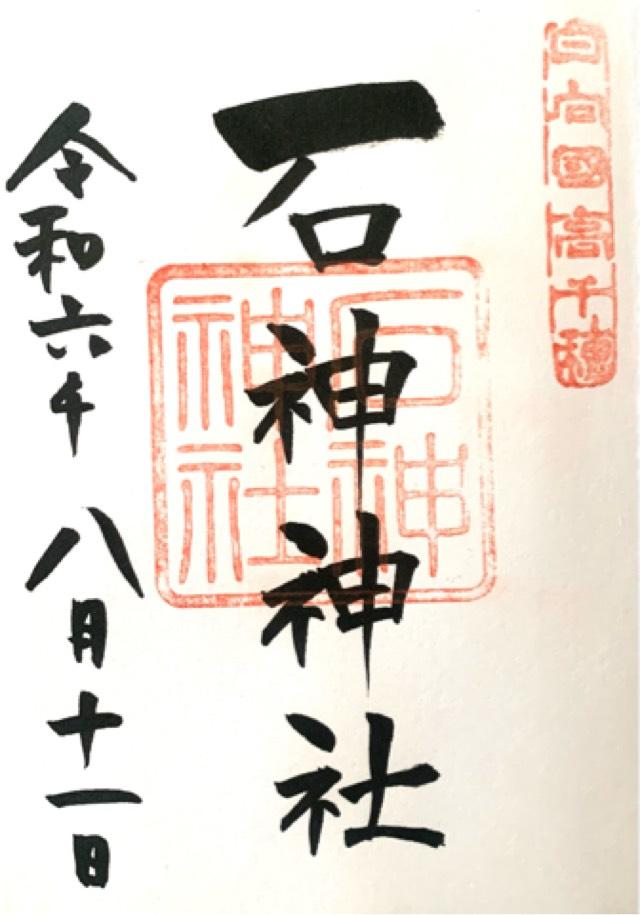 日向國高千穂
石神神社
石神神社
令和六年 八月十一日